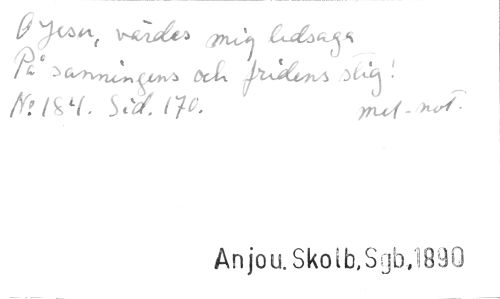 O Jesu, värdes mig ledsaga
På sanningens och fridens stig!
No: 184. Sid. 170. mel-not.
Anjou. Skolb, Sgb, 1890